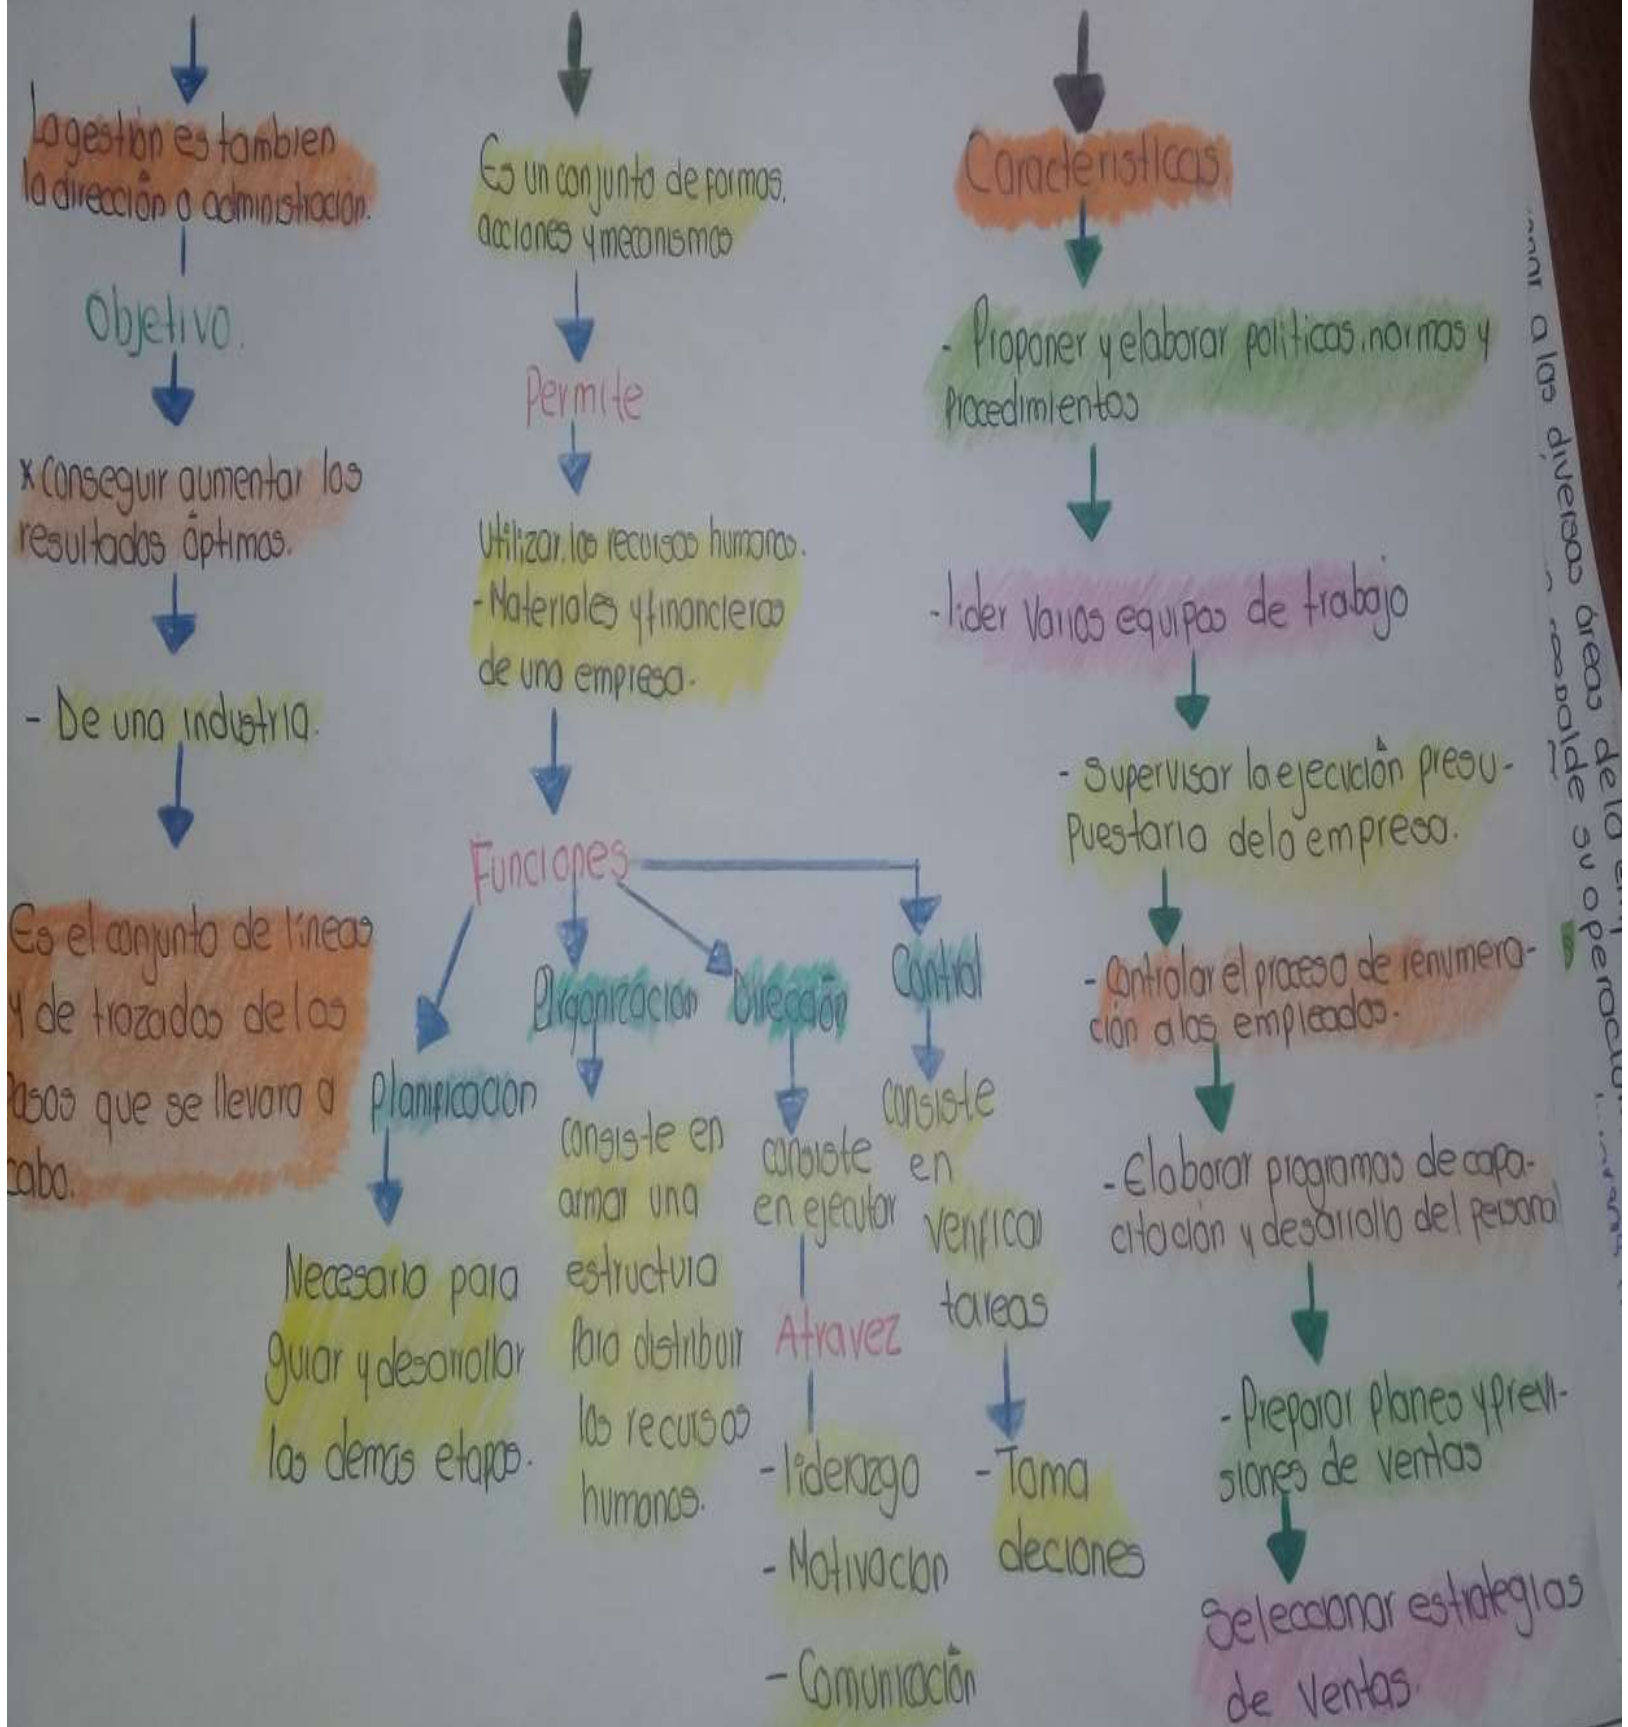 La gestión es tambien
la dirección o administración.
Objetivo.
x Conseguir aumentar los
resultados óptimos.
- De una industria.
Es el conjunto de líneas
y de trazados de los
Pasos que se llevara a
cabo.
Es un conjunto de formas,
acciones y mecanismos
Permite
Utilizar los recursos humanos.
- Materiales y financieros
de una empresa.
Funciones
Planificacion
Necesario para
guiar y desarrollar
las demas etapas.
Organización
consiste en
armar una
estructura
Para distribuir
los recursos
humanos.
Dirección
consiste
en ejecutar
Atravez
- liderazgo
- Motivacion
- Comunicación
Control
consiste
en
verificar
tareas
- Toma
deciones
Caracteristicas.
- Proponer y elaborar politicas, normas y
Procedimientos
- lider varios equipos de trabajo
- Supervisar la ejecución presu-
Puestaria de la empresa.
- Controlar el proceso de renumera-
ción a los empleados.
- Elaborar programas de capa-
citación y desarrollo del personal
- Preparar planes y previ-
siones de ventas
Seleccionar estrategias
de ventas.
a las diversas áreas de la
de su